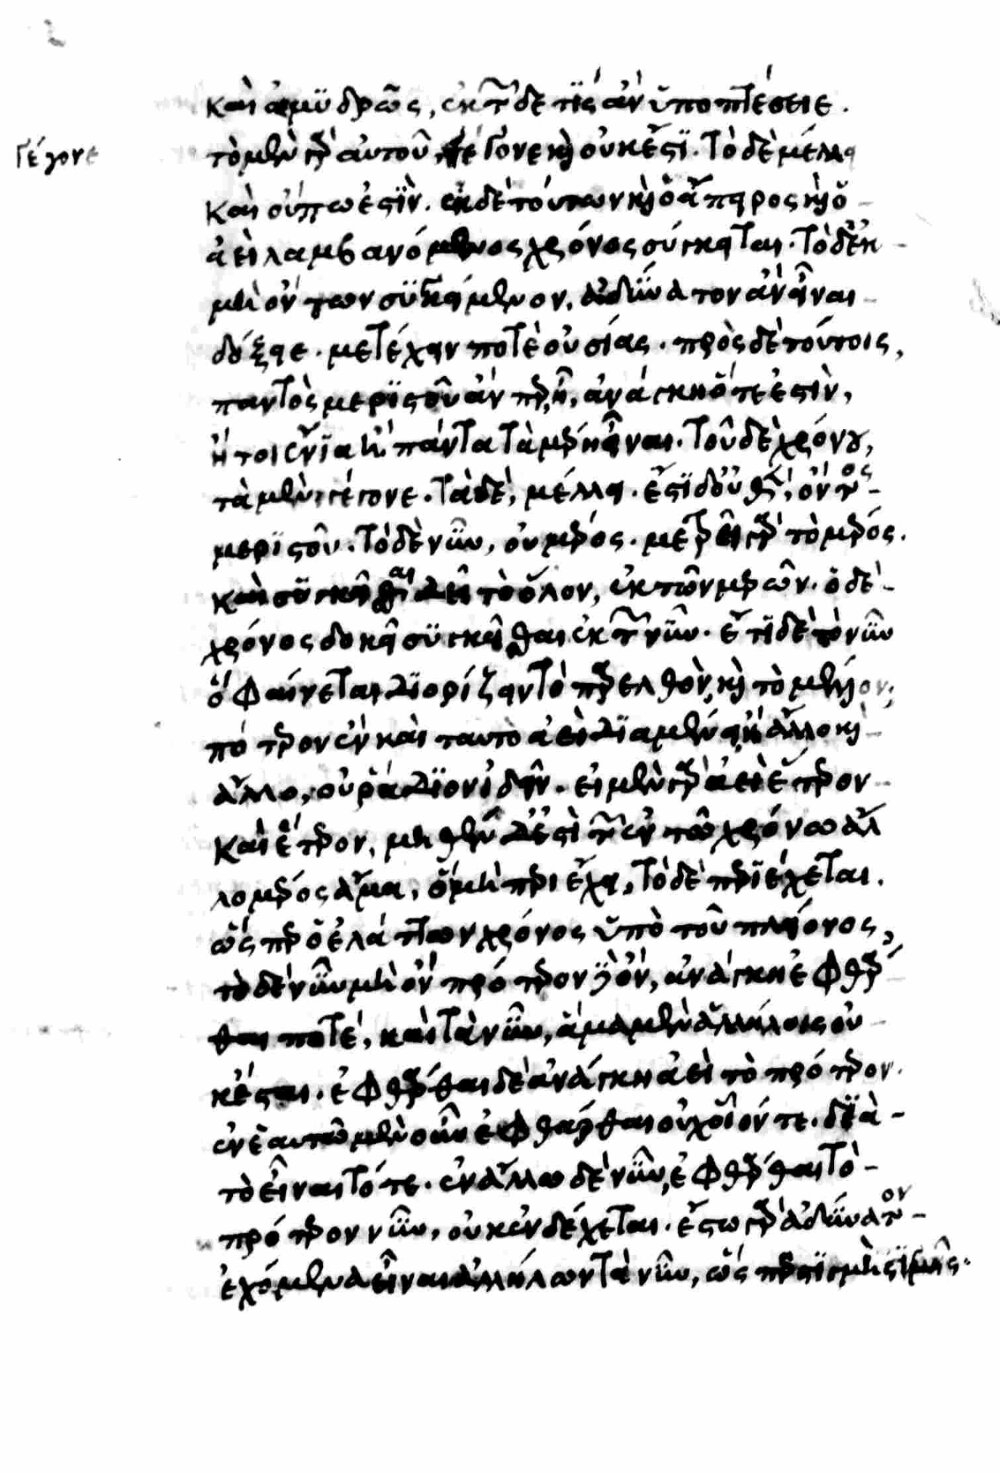 καὶ ἀμυδρῶς, ἐκ τῶνδε τίς ἂν ὑποπτεύσειε.
Γέγονε
τὸ μὲν γὰρ αὐτοῦ γέγονε καὶ οὐκ ἔστι. Τὸ δὲ μέλλει
καὶ οὔπω ἐστίν. ἐκ δὲ τούτων καὶ ὁ ἄπειρος καὶ ὁ
ἀεὶ λαμβανόμενος χρόνος σύγκειται. Τὸ δ' ἐκ
μὴ ὄντων συγκείμενον, ἀδύνατον ἂν εἶναι
δόξειε. μετέχειν ποτὲ οὐσίας. πρὸς δὲ τούτοις,
παντὸς μεριστοῦ ἄν περ ᾖ, ἀνάγκη ὅτε ἐστὶν,
ἤτοι ἔνια ἢ πάντα τὰ μέρη εἶναι. Τοῦ δὲ χρόνου,
τὰ μὲν γέγονε. Τὰ δὲ, μέλλει. ἔστι δ' οὐθέν, ὄντος
μεριστοῦ. Τὸ δὲ νῦν, οὐ μέρος. μετρεῖ γὰρ τὸ μέρος.
καὶ συγκεῖσθαι δεῖ τὸ ὅλον, ἐκ τῶν μερῶν. ὁ δὲ
χρόνος δοκεῖ συγκεῖσθαι ἐκ τῶν νῦν. ἔτι δὲ τὸ νῦν
ὃ φαίνεται διορίζειν τὸ παρελθὸν καὶ τὸ μέλλον,
πότερον ἓν καὶ ταυτὸ ἀεὶ διαμένει, ἢ ἄλλο καὶ
ἄλλο, οὐ ῥάδιον ἰδεῖν. εἰ μὲν γὰρ ἀεὶ ἕτερον
καὶ ἕτερον, μηθὲν δ' ἐστὶ τῶν ἐν τῶ χρόνω ἄλ
λο μέρος ἅμα, ὃ μὴ περιέχει, Τὸ δὲ περιέχεται.
ὥσπερ ὁ ἐλάττων χρόνος ὑπὸ τοῦ πλείονος,
τὸ δὲ νῦν μὴ ὂν πρότερον δὲ ὂν, ἀνάγκη ἐφθάρ
θαι ποτέ, καὶ τὰ νῦν, ἅμα μὲν ἀλλήλοις οὐ
κ ἔσται. ἐφθάρθαι δὲ ἀνάγκη ἀεὶ τὸ πρότερον.
ἐν ἑαυτῶ μὲν οὖν ἐφθάρθαι οὐχ οἷόν τε. διὰ
τὸ εἶναι τότε. ἐν ἄλλω δὲ νῦν, ἐφθάρθαι τὸ
πρότερον νῦν, οὐκ ἐνδέχεται. ἔστω γὰρ ἀδύνατον
ἐχόμενα εἶναι ἀλλήλων τὰ νῦν, ὥσπερ στιγμὴ στιγμῆς.